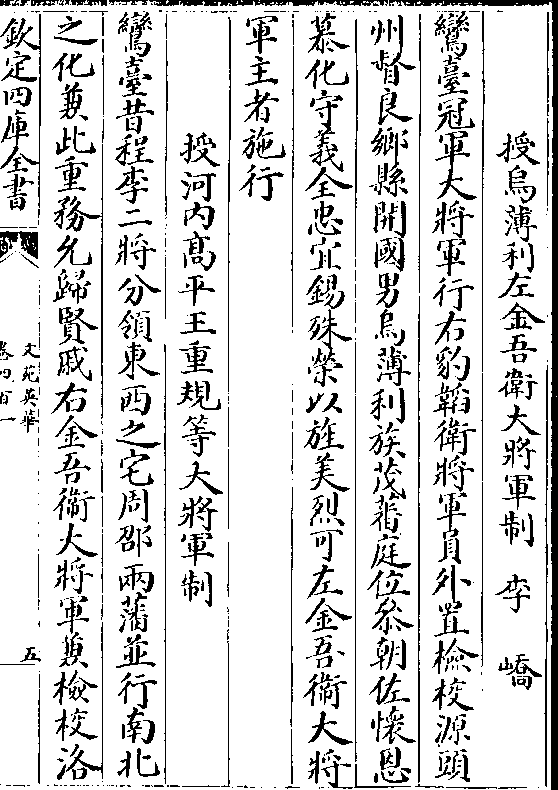 授烏薄利左金吾衛大將軍制 李嶠
鸞臺冠軍大將軍行右豹韜衛將軍員外置檢校源頭
州督良鄉縣開國男烏薄利族茂蕃庭位叅朝佐懷恩
慕化守義全忠宜錫殊榮以旌美烈可左金吾衛大將
軍主者施行
授河內髙平王重規等大將軍制
鸞臺昔程李二將分領東西之宅周邵兩藩並行南北
之化兼此重務允歸賢戚右金吾衛大將軍兼檢校洛
欽定四庫全書
文苑英華
卷四百一
五